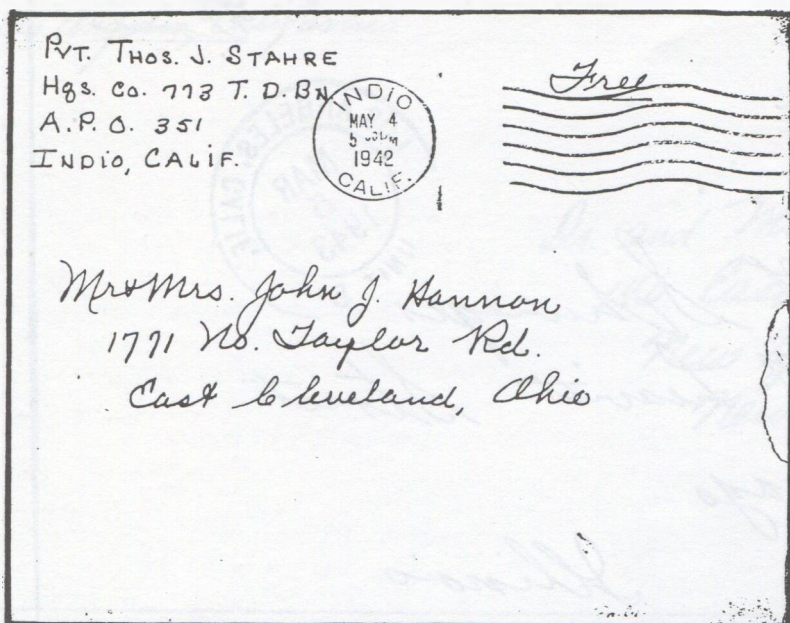 PVT. THOS. J. STAHRE
Hqs. Co. 773 T. D. BN
A. P. O. 351
INDIO, CALIF.
INDIO
MAY 4
5 PM
1942
CALIF.
Free
Mr & Mrs. John J. Hannon
1771 No. Taylor Rd.
East Cleveland, Ohio
Illinois